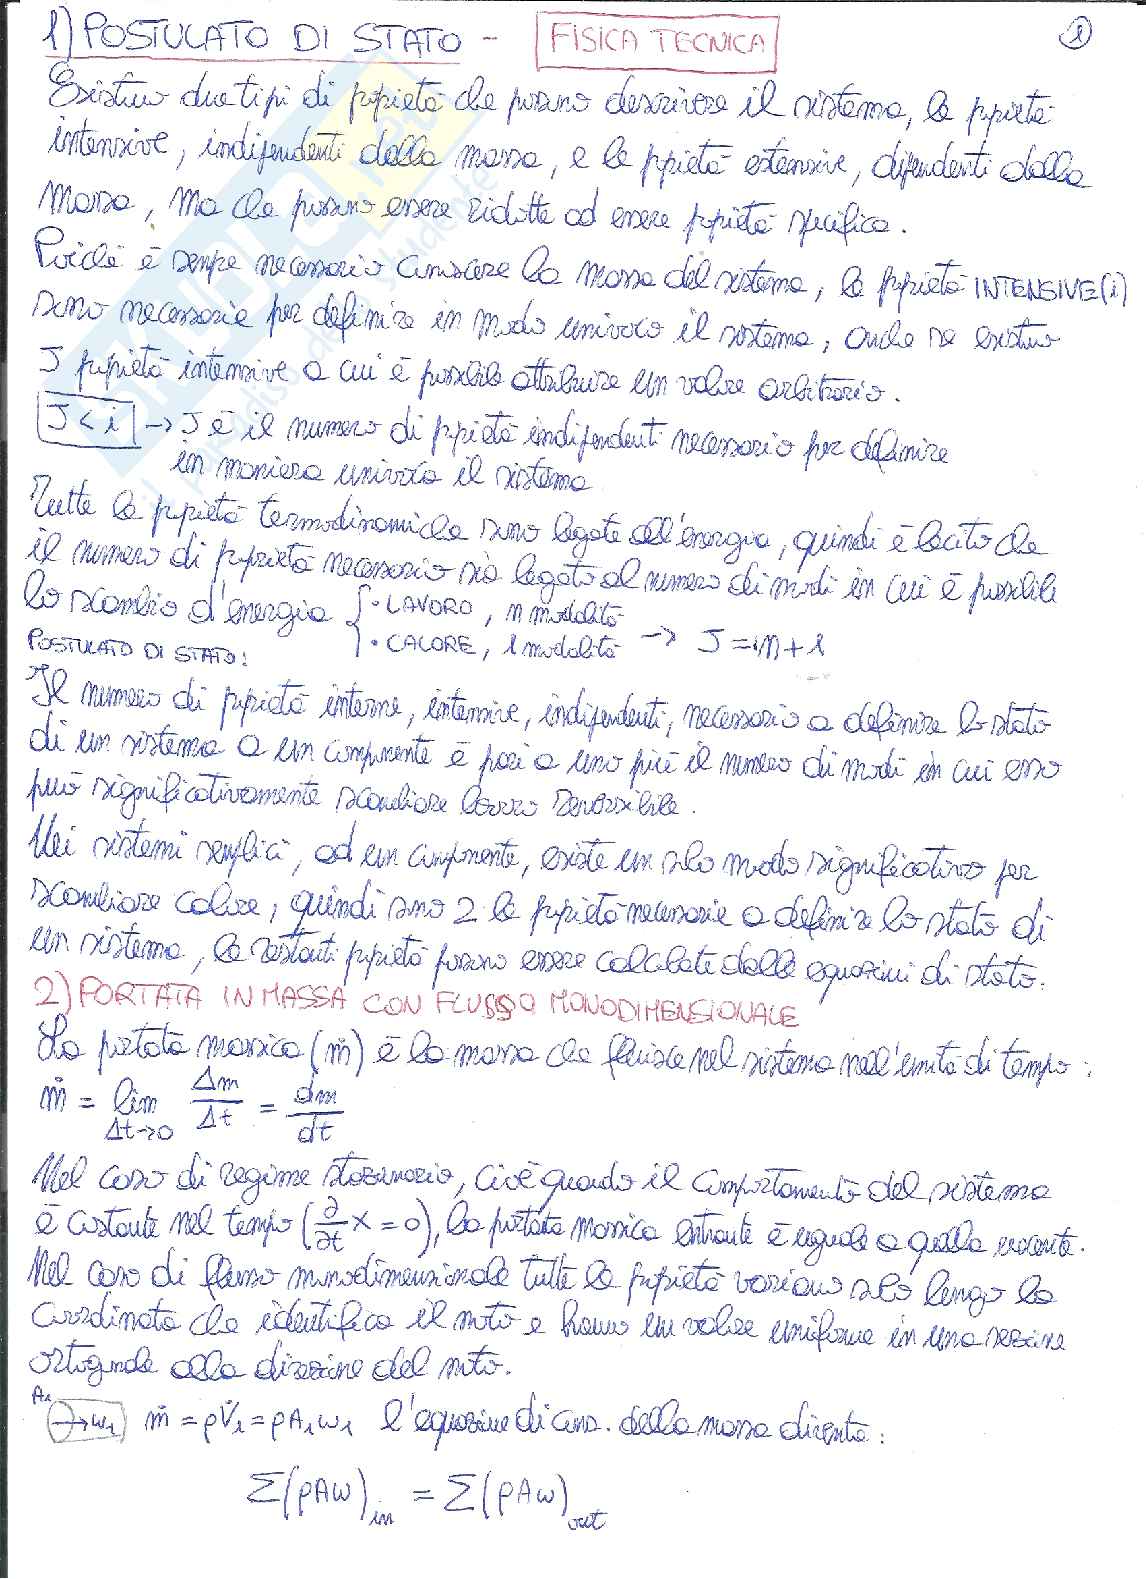 1) POSTULATO DI STATO - FISICA TECNICA 1
Esistono due tipi di proprietà che possono descrivere il sistema, le pprietà
intensive, indipendenti dalla massa, e le pprietà estensive, dipendenti dalla
massa, ma che possono essere ridotte ad essere proprietà specifica.
Poiché è sempre necessario conoscere la massa del sistema, le proprietà INTENSIVE (i)
sono necessarie per definire in modo univoco il sistema, anche se esistono
J proprietà intensive a cui è possibile attribuire un valore arbitrario.
J < i → J è il numero di proprietà indipendenti necessario per definire
in maniera univoca il sistema
Tutte le proprietà termodinamiche sono legate all'energia, quindi è lecito che
il numero di proprietà necessario sia legato al numero di modi in cui è possibile
lo scambio d'energia { · LAVORO, n modalità
· CALORE, 1 modalità → J = n + 1
POSTULATO DI STATO:
Il numero di proprietà interne, intensive, indipendenti, necessario a definire lo stato
di un sistema a un componente è pari a uno più il numero di modi in cui esso
può significativamente scambiare lavoro reversibile.
Nei sistemi semplici, ad un componente, esiste un solo modo significativo per
scambiare calore, quindi sono 2 le proprietà necessarie a definire lo stato di
un sistema, le restanti proprietà possono essere calcolate dalle equazioni di stato.
2) PORTATA IN MASSA CON FLUSSO MONODIMENSIONALE
La portata massica (ṁ) è la massa che fluisce nel sistema nell'unità di tempo:
ṁ = lim Δt→0 Δm/Δt = dm/dt
Nel caso di regime stazionario, cioè quando il comportamento del sistema
è costante nel tempo (∂/∂t x = 0), la portata massica entrante è uguale a quella uscente.
Nel caso di flusso monodimensionale tutte le proprietà variano solo lungo la
coordinata che identifica il moto e hanno un valore uniforme in una sezione
ortogonale alla direzione del moto.
A₁ → w₁ ṁ = ρV̇₁ = ρA₁w₁ l'equazione di cons. della massa diventa:
Σ(ρAw)in = Σ(ρAw)out